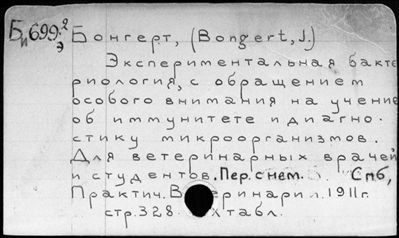 Би699.2 Бонгерт, (Bongert, J.)
э
Экспериментальная бакте
риология, с обращением
особого внимания на учение
об иммунитете и диагно-
стику микроорганизмов.
Для ветеринарных врачей
и студентов. Пер. с нем. Спб,
Практич. 1911г.
стр. 328 табл.